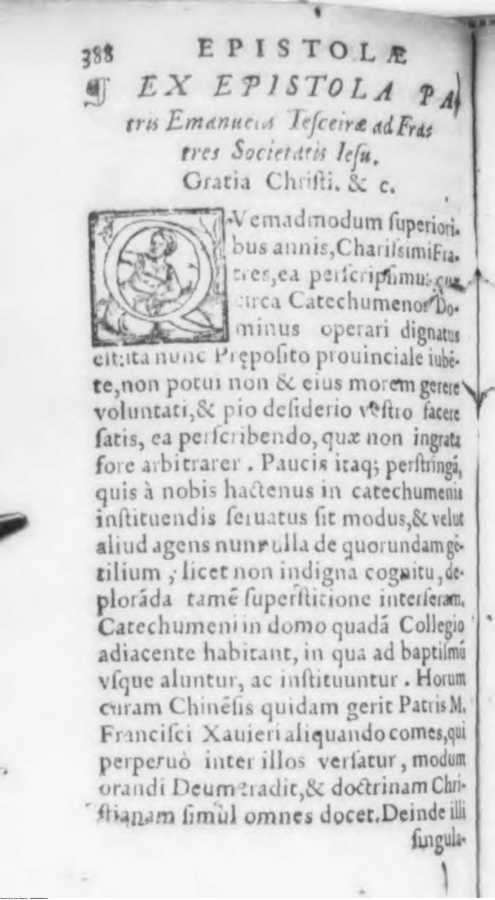 388 EPISTOLÆ
¶ EX EPISTOLA PA
tris Emanuelis Teſceiræ ad Fra-
tres Societatis Ieſu.
Gratia Chriſti. & c.
QVemadmodum ſuperiori-
bus annis, Chariſsimi Fra-
tres, ea perſcripſimus quę
circa Catechumenos Do-
minus operari dignatus
eſt: ita nunc Prępoſito prouinciale iubē-
te, non potui non & eius morem gerere
voluntati, & pio deſiderio veſtro facere
ſatis, ea perſcribendo, quæ non ingrata
fore arbitrarer. Paucis itaq; perſtringā,
quis à nobis hactenus in catechumenis
inſtituendis ſeruatus ſit modus, & velut
aliud agens nunnulla de quorundam gē-
tilium, licet non indigna cognitu, de-
plorāda tamē ſuperſtitione interſeram.
Catechumeni in domo quadā Collegio
adiacente habitant, in qua ad baptiſmū
vſque aluntur, ac inſtituuntur. Horum
curam Chinēſis quidam gerit Patris M.
Franciſci Xauieri aliquando comes, qui
perpetuò inter illos verſatur, modum
orandi Deum tradit, & doctrinam Chri-
ſtianam ſimul omnes docet. Deinde illi
ſingula-